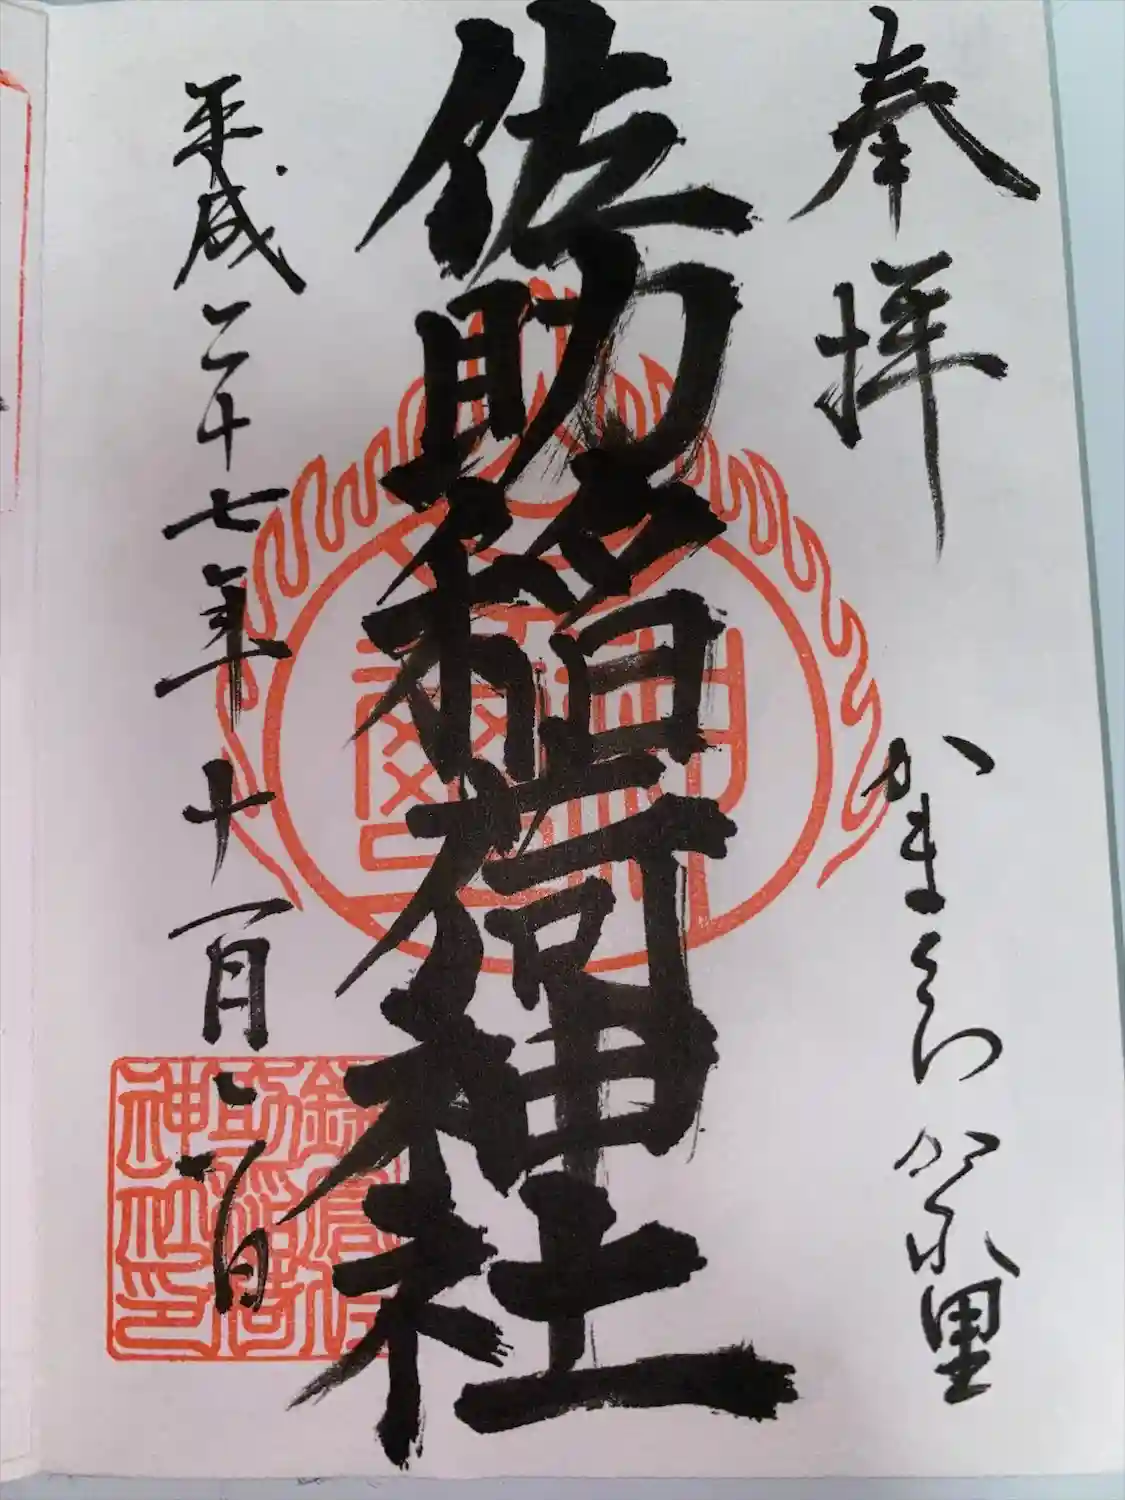 奉拝
かまくらかくれ里
佐助稲荷神社
神璽
平成二十七年十一月三日
鎌倉佐
助稲荷
神社印